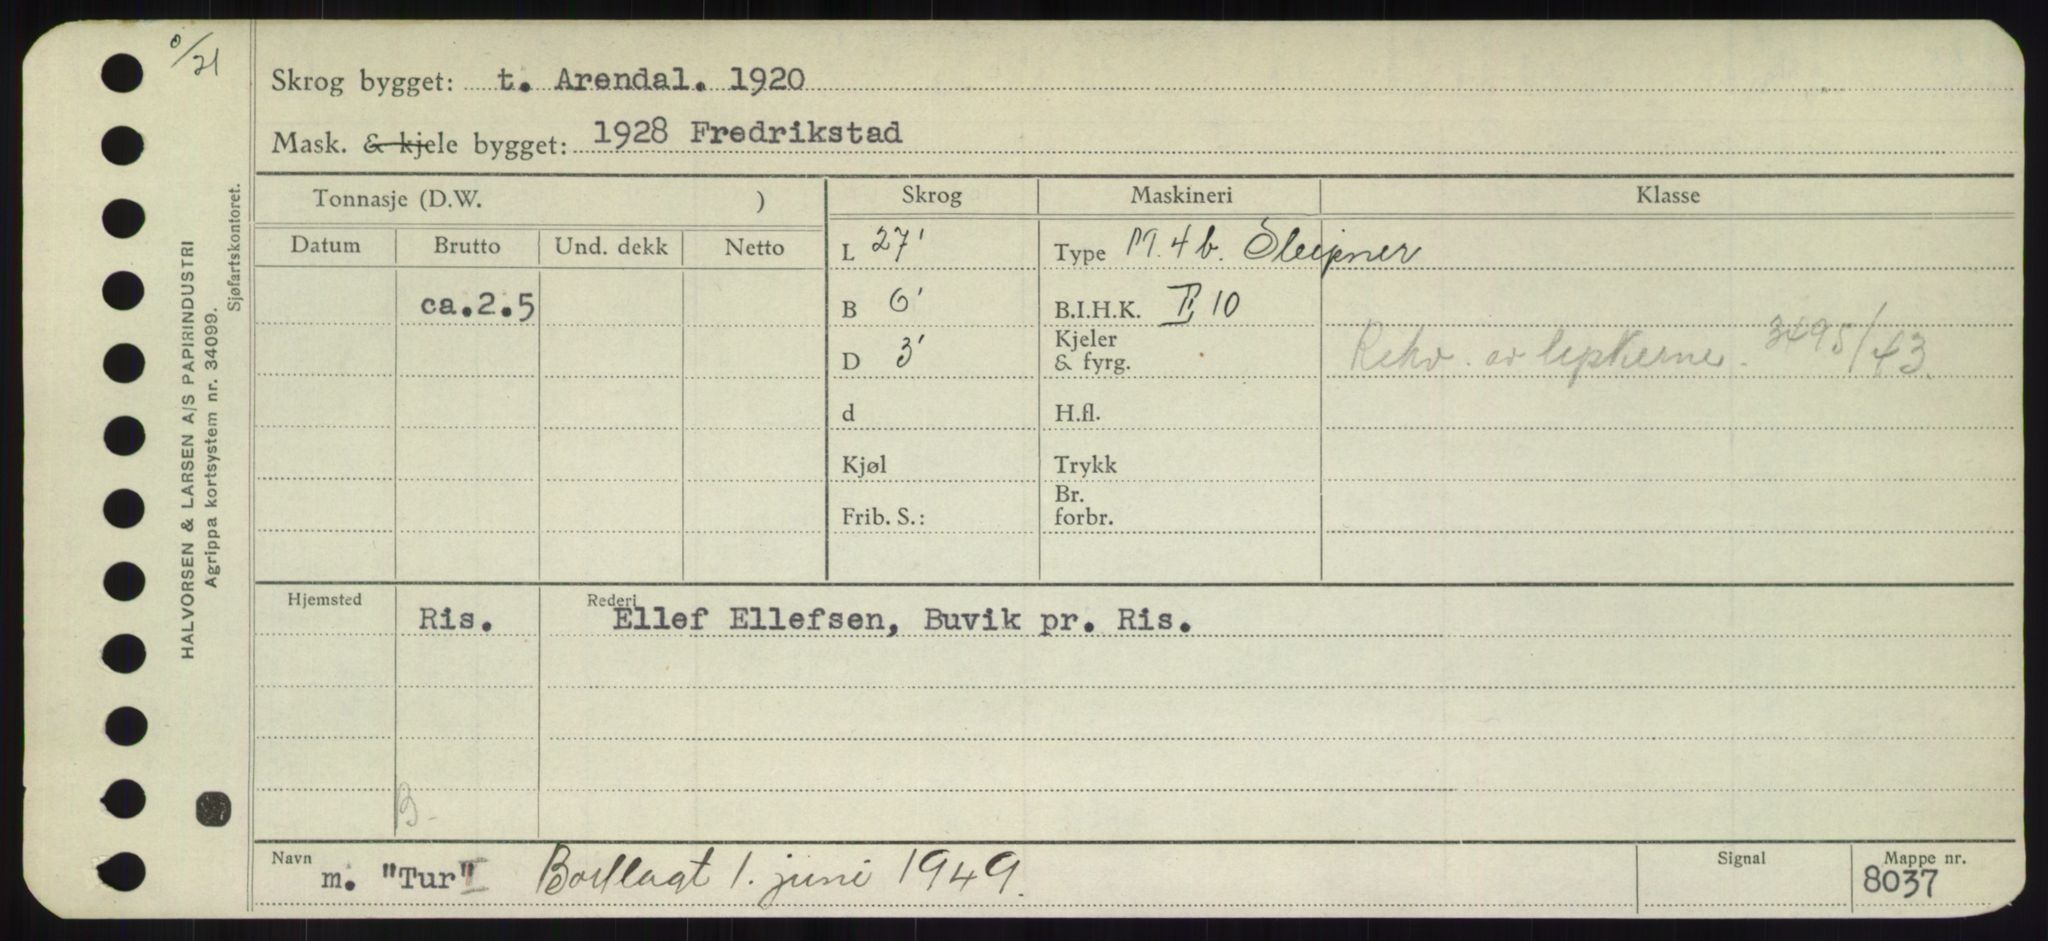 0/21
Skrog bygget: t. Arendal. 1920
Mask. & kjele bygget: 1928 Fredrikstad
Tonnasje (D.W. ) Skrog Maskineri Klasse
Datum Brutto Und. dekk Netto
L 27' Type M. 4 b. Sleipner
ca.2.5 B 6' B.I.H.K. II, 10
D 3' Kjeler & fyrg. Rekv. av 3495/43
d H.fl.
Kjøl Trykk
Frib. S.: Br. forbr.
Hjemsted Ris. Rederi Ellef Ellefsen, Buvik pr. Ris.
B.
Navn m. "Tur" Bortlagt 1. juni 1949. Signal Mappe nr. 8037
HALVORSEN & LARSEN A/S PAPIRINDUSTRI
Agrippa kortsystem nr. 34099.
Sjøfartskontoret.